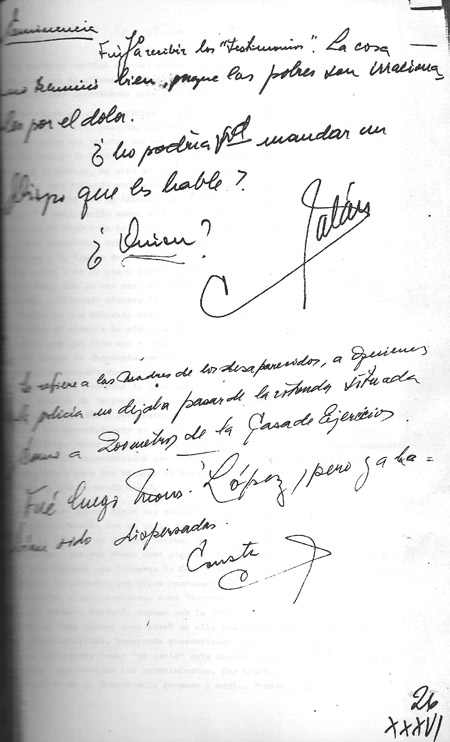 Eminencia
Fui a recibir los "testimonios". La cosa
no terminó bien, porque las pobres son irraciona
les por el dolor.
¿No podría Vd mandar un
Obispo que les hable?
¿Quien?
Galán
Se refiere a las Madres de los desaparecidos, a quienes
la policía no dejaba pasar de la rotonda situada
como a 200 metros de la Casa de Ejercicios.
Fué luego Mons. López, pero ya ha=
bían sido dispersadas.
Conste
26
XXXVI